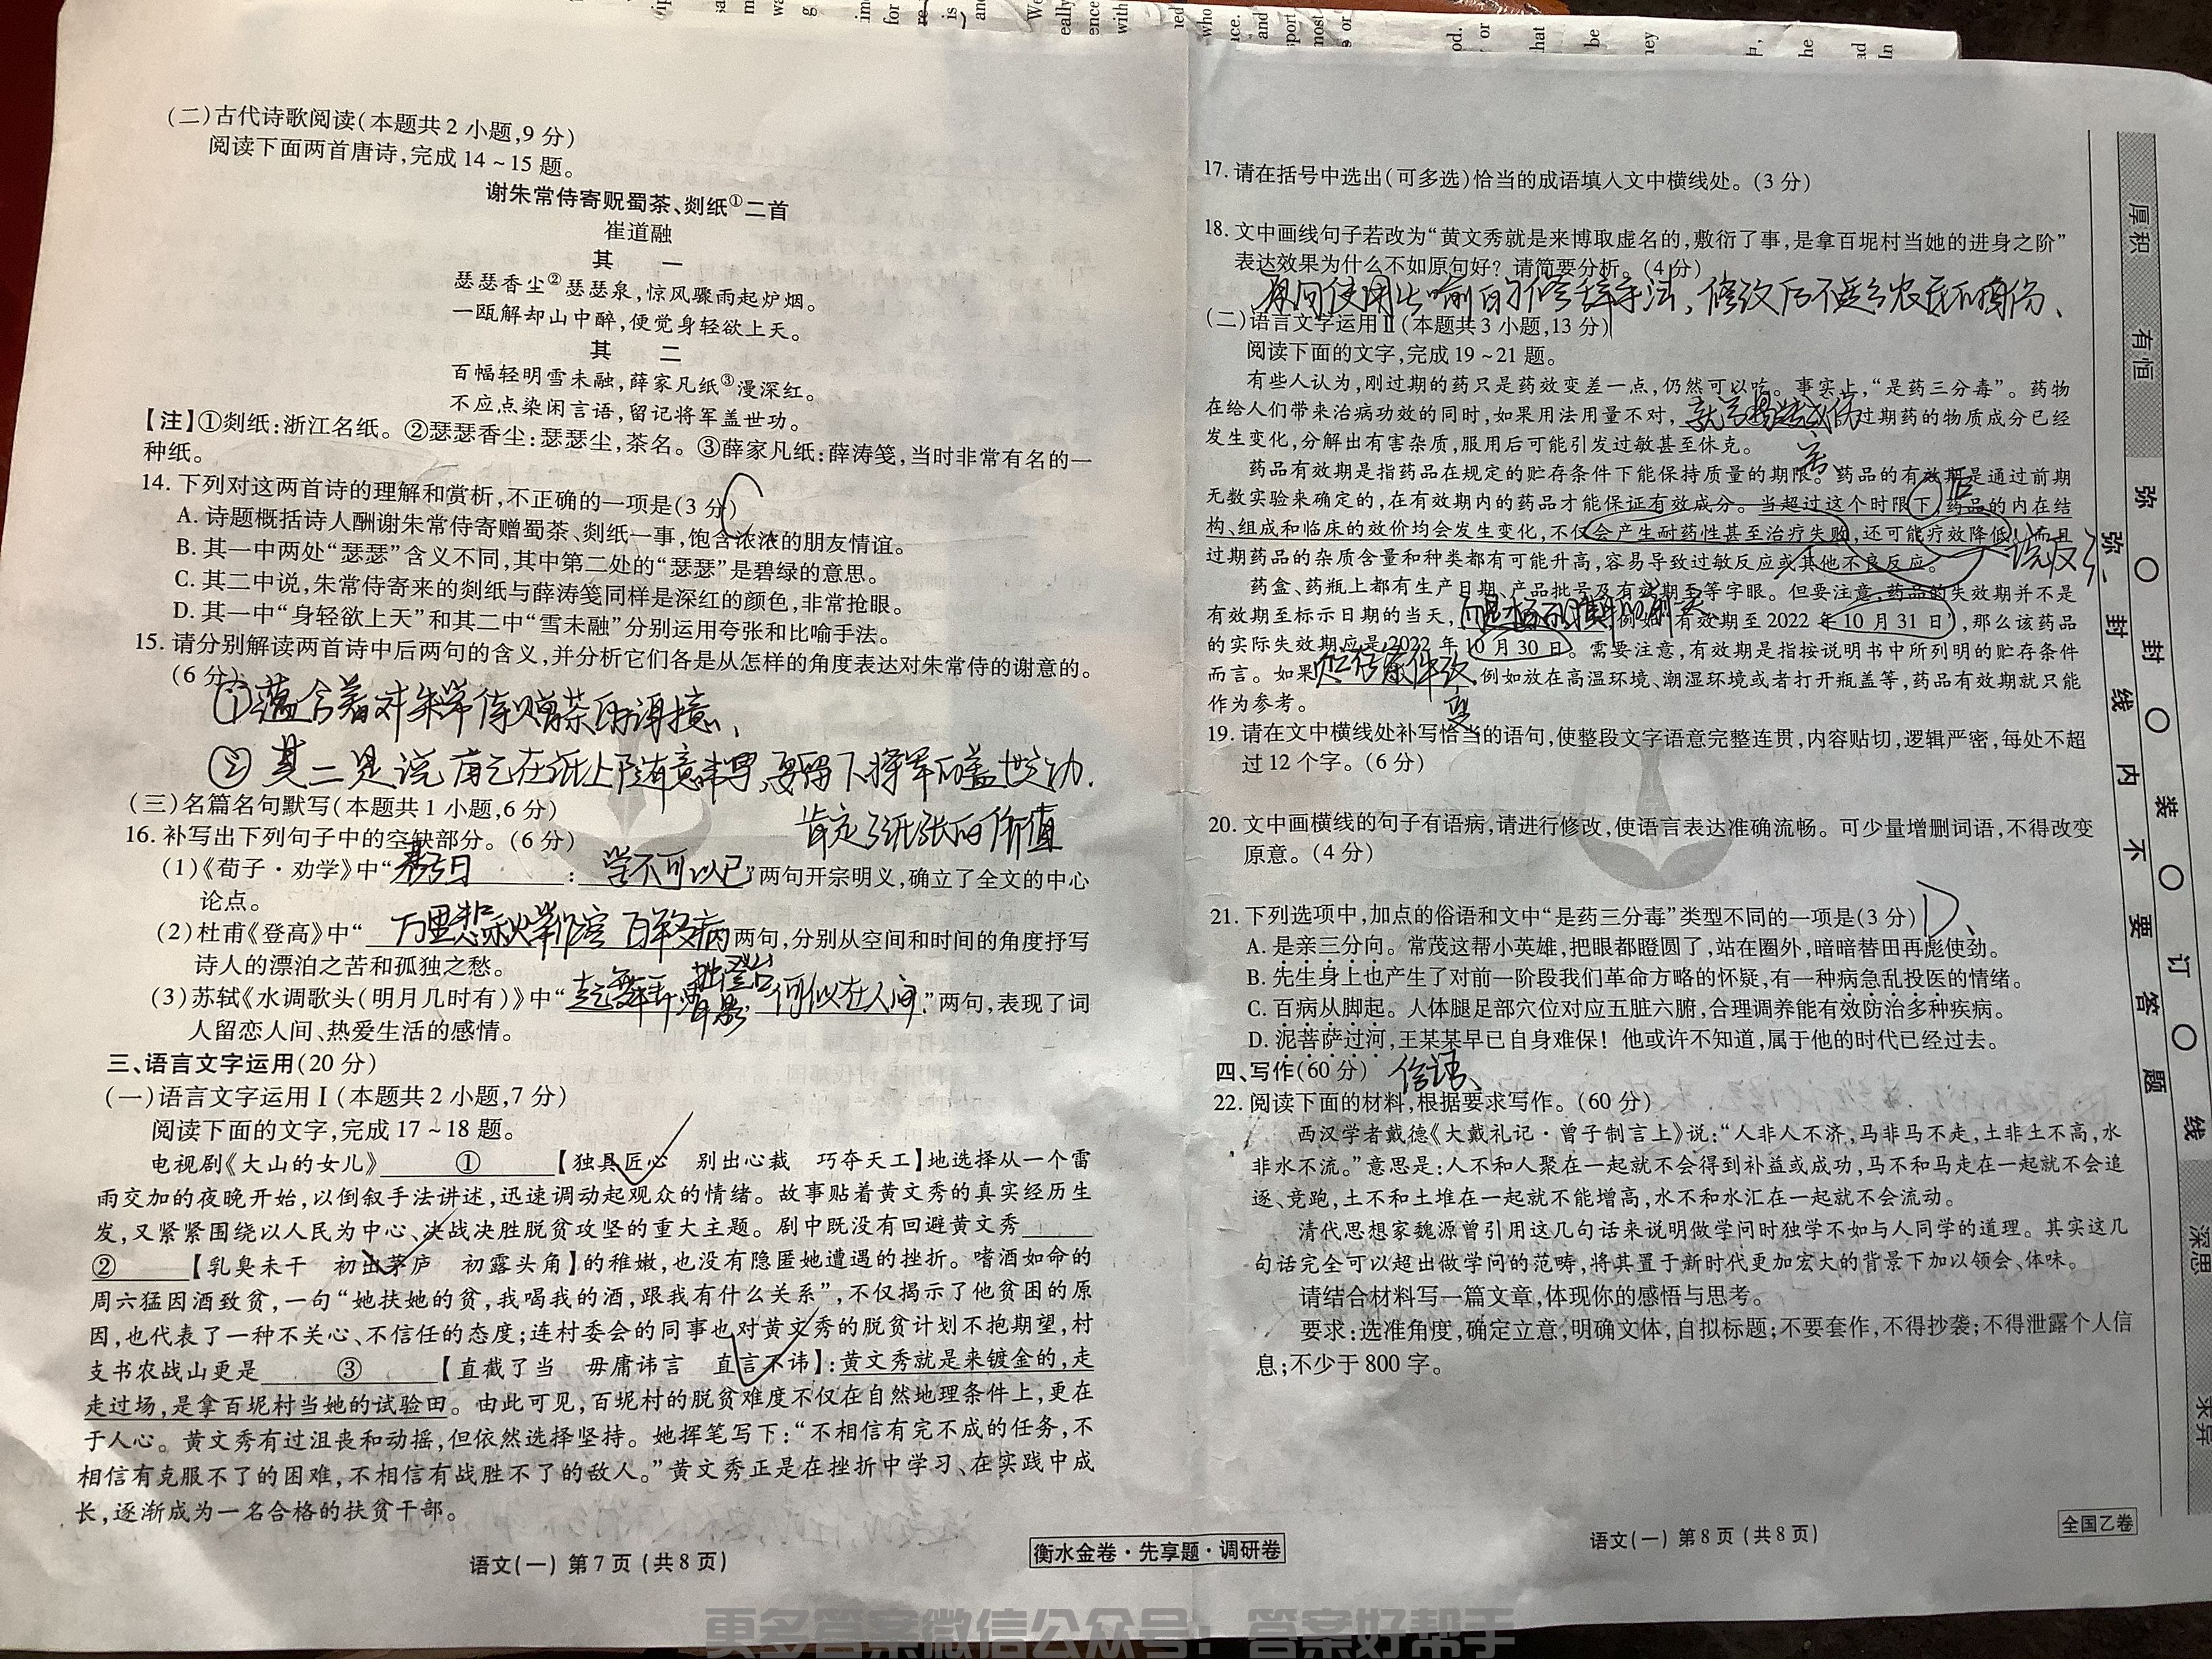 (二)古代诗歌阅读(本题共2小题,9分)
阅读下面两首唐诗,完成14~15题。
谢朱常侍寄贶蜀茶、剡纸①二首
崔道融
其 一
瑟瑟香尘②瑟瑟泉,惊风骤雨起炉烟。
一瓯解却山中醉,便觉身轻欲上天。
其 二
百幅轻明雪未融,薛家凡纸③漫深红。
不应点染闲言语,留记将军盖世功。
【注】①剡纸:浙江名纸。②瑟瑟香尘:瑟瑟尘,茶名。③薛家凡纸:薛涛笺,当时非常有名的一
种纸。
14.下列对这两首诗的理解和赏析,不正确的一项是(3分)C
A.诗题概括诗人酬谢朱常侍寄赠蜀茶、剡纸一事,饱含浓浓的朋友情谊。
B.其一中两处“瑟瑟”含义不同,其中第二处的“瑟瑟”是碧绿的意思。
C.其二中说,朱常侍寄来的剡纸与薛涛笺同样是深红的颜色,非常抢眼。
D.其一中“身轻欲上天”和其二中“雪未融”分别运用夸张和比喻手法。
15.请分别解读两首诗中后两句的含义,并分析它们各是从怎样的角度表达对朱常侍的谢意的。
(6分)
①蕴含着对朱常侍赠茶的谢意、
②其二是说自己在纸上随意书写,要留下将军的盖世功.
肯定了纸张的价值
(三)名篇名句默写(本题共1小题,6分)
16.补写出下列句子中的空缺部分。(6分)
(1)《荀子·劝学》中“君子曰:学不可以已”两句开宗明义,确立了全文的中心
论点。
(2)杜甫《登高》中“万里悲秋常作客 百年多病独登台”两句,分别从空间和时间的角度抒写
诗人的漂泊之苦和孤独之愁。
(3)苏轼《水调歌头(明月几时有)》中“起舞弄清影 何似在人间”两句,表现了词
人留恋人间、热爱生活的感情。
三、语言文字运用(20分)
(一)语言文字运用Ⅰ(本题共2小题,7分)
阅读下面的文字,完成17~18题。
电视剧《大山的女儿》①【独具匠心 别出心裁 巧夺天工】地选择从一个雷
雨交加的夜晚开始,以倒叙手法讲述,迅速调动起观众的情绪。故事贴着黄文秀的真实经历生
发,又紧紧围绕以人民为中心、决战决胜脱贫攻坚的重大主题。剧中既没有回避黄文秀
②【乳臭未干 初出茅庐 初露头角】的稚嫩,也没有隐匿她遭遇的挫折。嗜酒如命的
周六猛因酒致贫,一句“她扶她的贫,我喝我的酒,跟我有什么关系”,不仅揭示了他贫困的原
因,也代表了一种不关心、不信任的态度;连村委会的同事也对黄文秀的脱贫计划不抱期望,村
支书农战山更是③【直截了当 毋庸讳言 直言不讳】:黄文秀就是来镀金的,走
走过场,是拿百坭村当她的试验田。由此可见,百坭村的脱贫难度不仅在自然地理条件上,更在
于人心。黄文秀有过沮丧和动摇,但依然选择坚持。她挥笔写下:“不相信有完不成的任务,不
相信有克服不了的困难,不相信有战胜不了的敌人。”黄文秀正是在挫折中学习、在实践中成
长,逐渐成为一名合格的扶贫干部。
语文(一) 第7页(共8页)
衡水金卷·先享题·调研卷
17.请在括号中选出(可多选)恰当的成语填入文中横线处。(3分)
18.文中画线句子若改为“黄文秀就是来博取虚名的,敷衍了事,是拿百坭村当她的进身之阶”
表达效果为什么不如原句好?请简要分析。(4分)
原句使用比喻的修辞手法,修改后不适合农民的身份、
(二)语言文字运用Ⅱ(本题共3小题,13分)
阅读下面的文字,完成19~21题。
有些人认为,刚过期的药只是药效变差一点,仍然可以吃。事实上,“是药三分毒”。药物
在给人们带来治病功效的同时,如果用法用量不对,就会造成伤害、过期药的物质成分已经
发生变化,分解出有害杂质,服用后可能引发过敏甚至休克。
药品有效期是指药品在规定的贮存条件下能保持质量的期限。药品的有效期是通过前期
无数实验来确定的,在有效期内的药品才能保证有效成分。当超过这个时限下,药品的内在结
后
构、组成和临床的效价均会发生变化,不仅会产生耐药性甚至治疗失败,还可能疗效降低,而且
说反了、
过期药品的杂质含量和种类都有可能升高,容易导致过敏反应或其他不良反应。
药盒、药瓶上都有生产日期、产品批号及有效期至等字眼。但要注意,药品的失效期并不是
有效期至标示日期的当天,而是标示日期的前一天例如“有效期至2022年10月31日”,那么该药品
的实际失效期应是2022年10月30日。需要注意,有效期是指按说明书中所列明的贮存条件
而言。如果贮存条件改变,例如放在高温环境、潮湿环境或者打开瓶盖等,药品有效期就只能
作为参考。
19.请在文中横线处补写恰当的语句,使整段文字语意完整连贯,内容贴切,逻辑严密,每处不超
过12个字。(6分)
20.文中画横线的句子有语病,请进行修改,使语言表达准确流畅。可少量增删词语,不得改变
原意。(4分)
21.下列选项中,加点的俗语和文中“是药三分毒”类型不同的一项是(3分)D、
A.是亲三分向。常茂这帮小英雄,把眼都瞪圆了,站在圈外,暗暗替田再彪使劲。
B.先生身上也产生了对前一阶段我们革命方略的怀疑,有一种病急乱投医的情绪。
C.百病从脚起。人体腿足部穴位对应五脏六腑,合理调养能有效防治多种疾病。
D.泥菩萨过河,王某某早已自身难保!他或许不知道,属于他的时代已经过去。
四、写作(60分)
22.阅读下面的材料,根据要求写作。(60分)
西汉学者戴德《大戴礼记·曾子制言上》说:“人非人不济,马非马不走,土非土不高,水
非水不流。”意思是:人不和人聚在一起就不会得到补益或成功,马不和马走在一起就不会追
逐、竞跑,土不和土堆在一起就不能增高,水不和水汇在一起就不会流动。
清代思想家魏源曾引用这几句话来说明做学问时独学不如与人同学的道理。其实这几
句话完全可以超出做学问的范畴,将其置于新时代更加宏大的背景下加以领会、体味。
请结合材料写一篇文章,体现你的感悟与思考。
要求:选准角度,确定立意,明确文体,自拟标题;不要套作,不得抄袭;不得泄露个人信
息;不少于800字。
语文(一) 第8页(共8页)
全国乙卷
厚积 有恒
弥 封 线 内 不 要 答 题
弥 封 装 订 线
深思 求异
更多答案微信公众号:答案好帮手